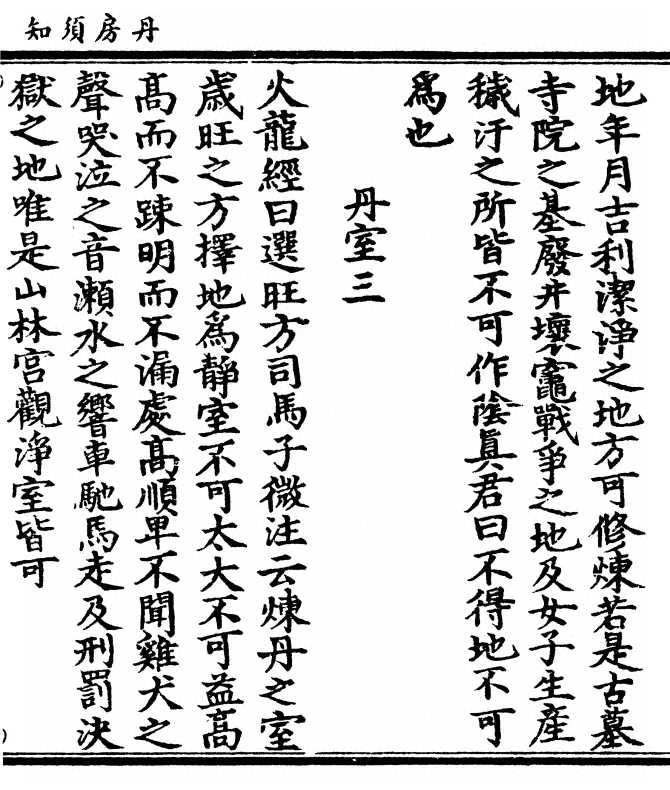 丹房須知
地年月吉利潔淨之地方可修煉若是古墓
寺院之基廢井壞竈戰爭之地及女子生產
穢汙之所皆不可作陰真君曰不得地不可
為也
丹室三
火龍經曰選旺方司馬子微注云煉丹之室
歲旺之方擇地為靜室不可太大不可益高
高而不踈明而不漏處高順卑不聞雞犬之
聲哭泣之音瀨水之響車馳馬走及刑罰決
獄之地唯是山林宮觀淨室皆可